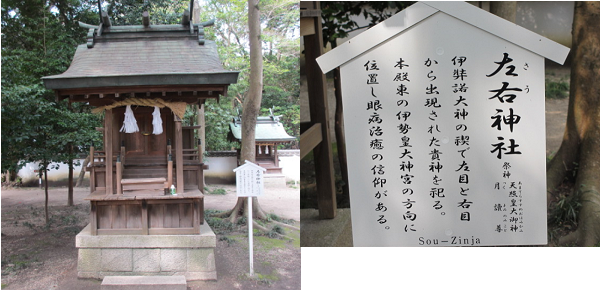 左右神社
さう
祭神
天照皇大御神
月讀尊
伊弉諾大神の禊で左目と右目
から出現された貴神を祀る。
本殿東の伊勢皇大神宮の方向に
位置し眼病治癒の信仰がある。
Sou-Zinja
左右神社